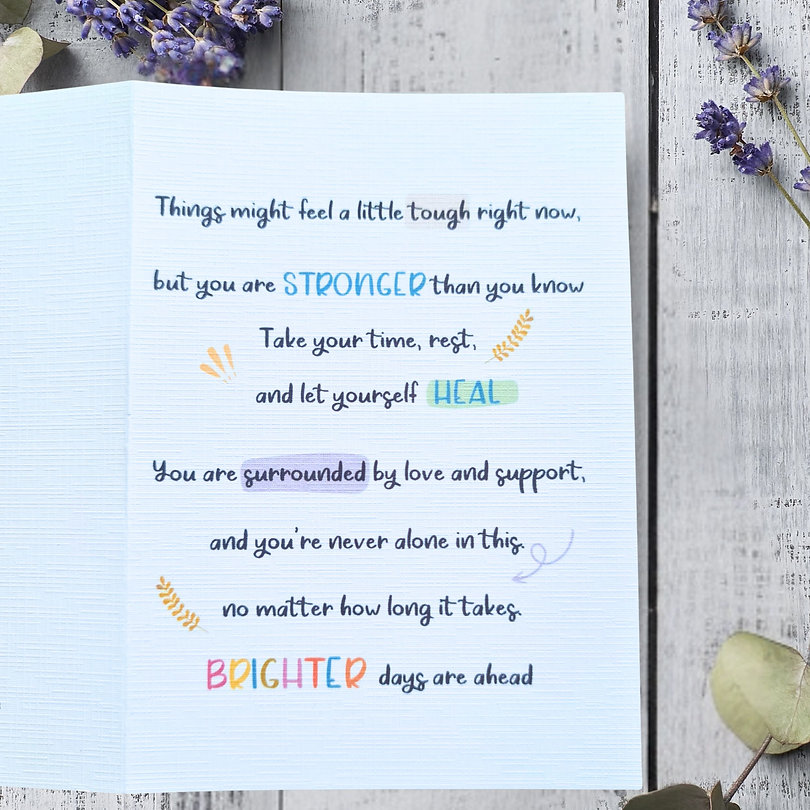 Things might feel a little tough right now,
but you are STRONGER than you know
Take your time, rest,
and let yourself HEAL
You are surrounded by love and support,
and you're never alone in this.
no matter how long it takes.
BRIGHTER days are ahead